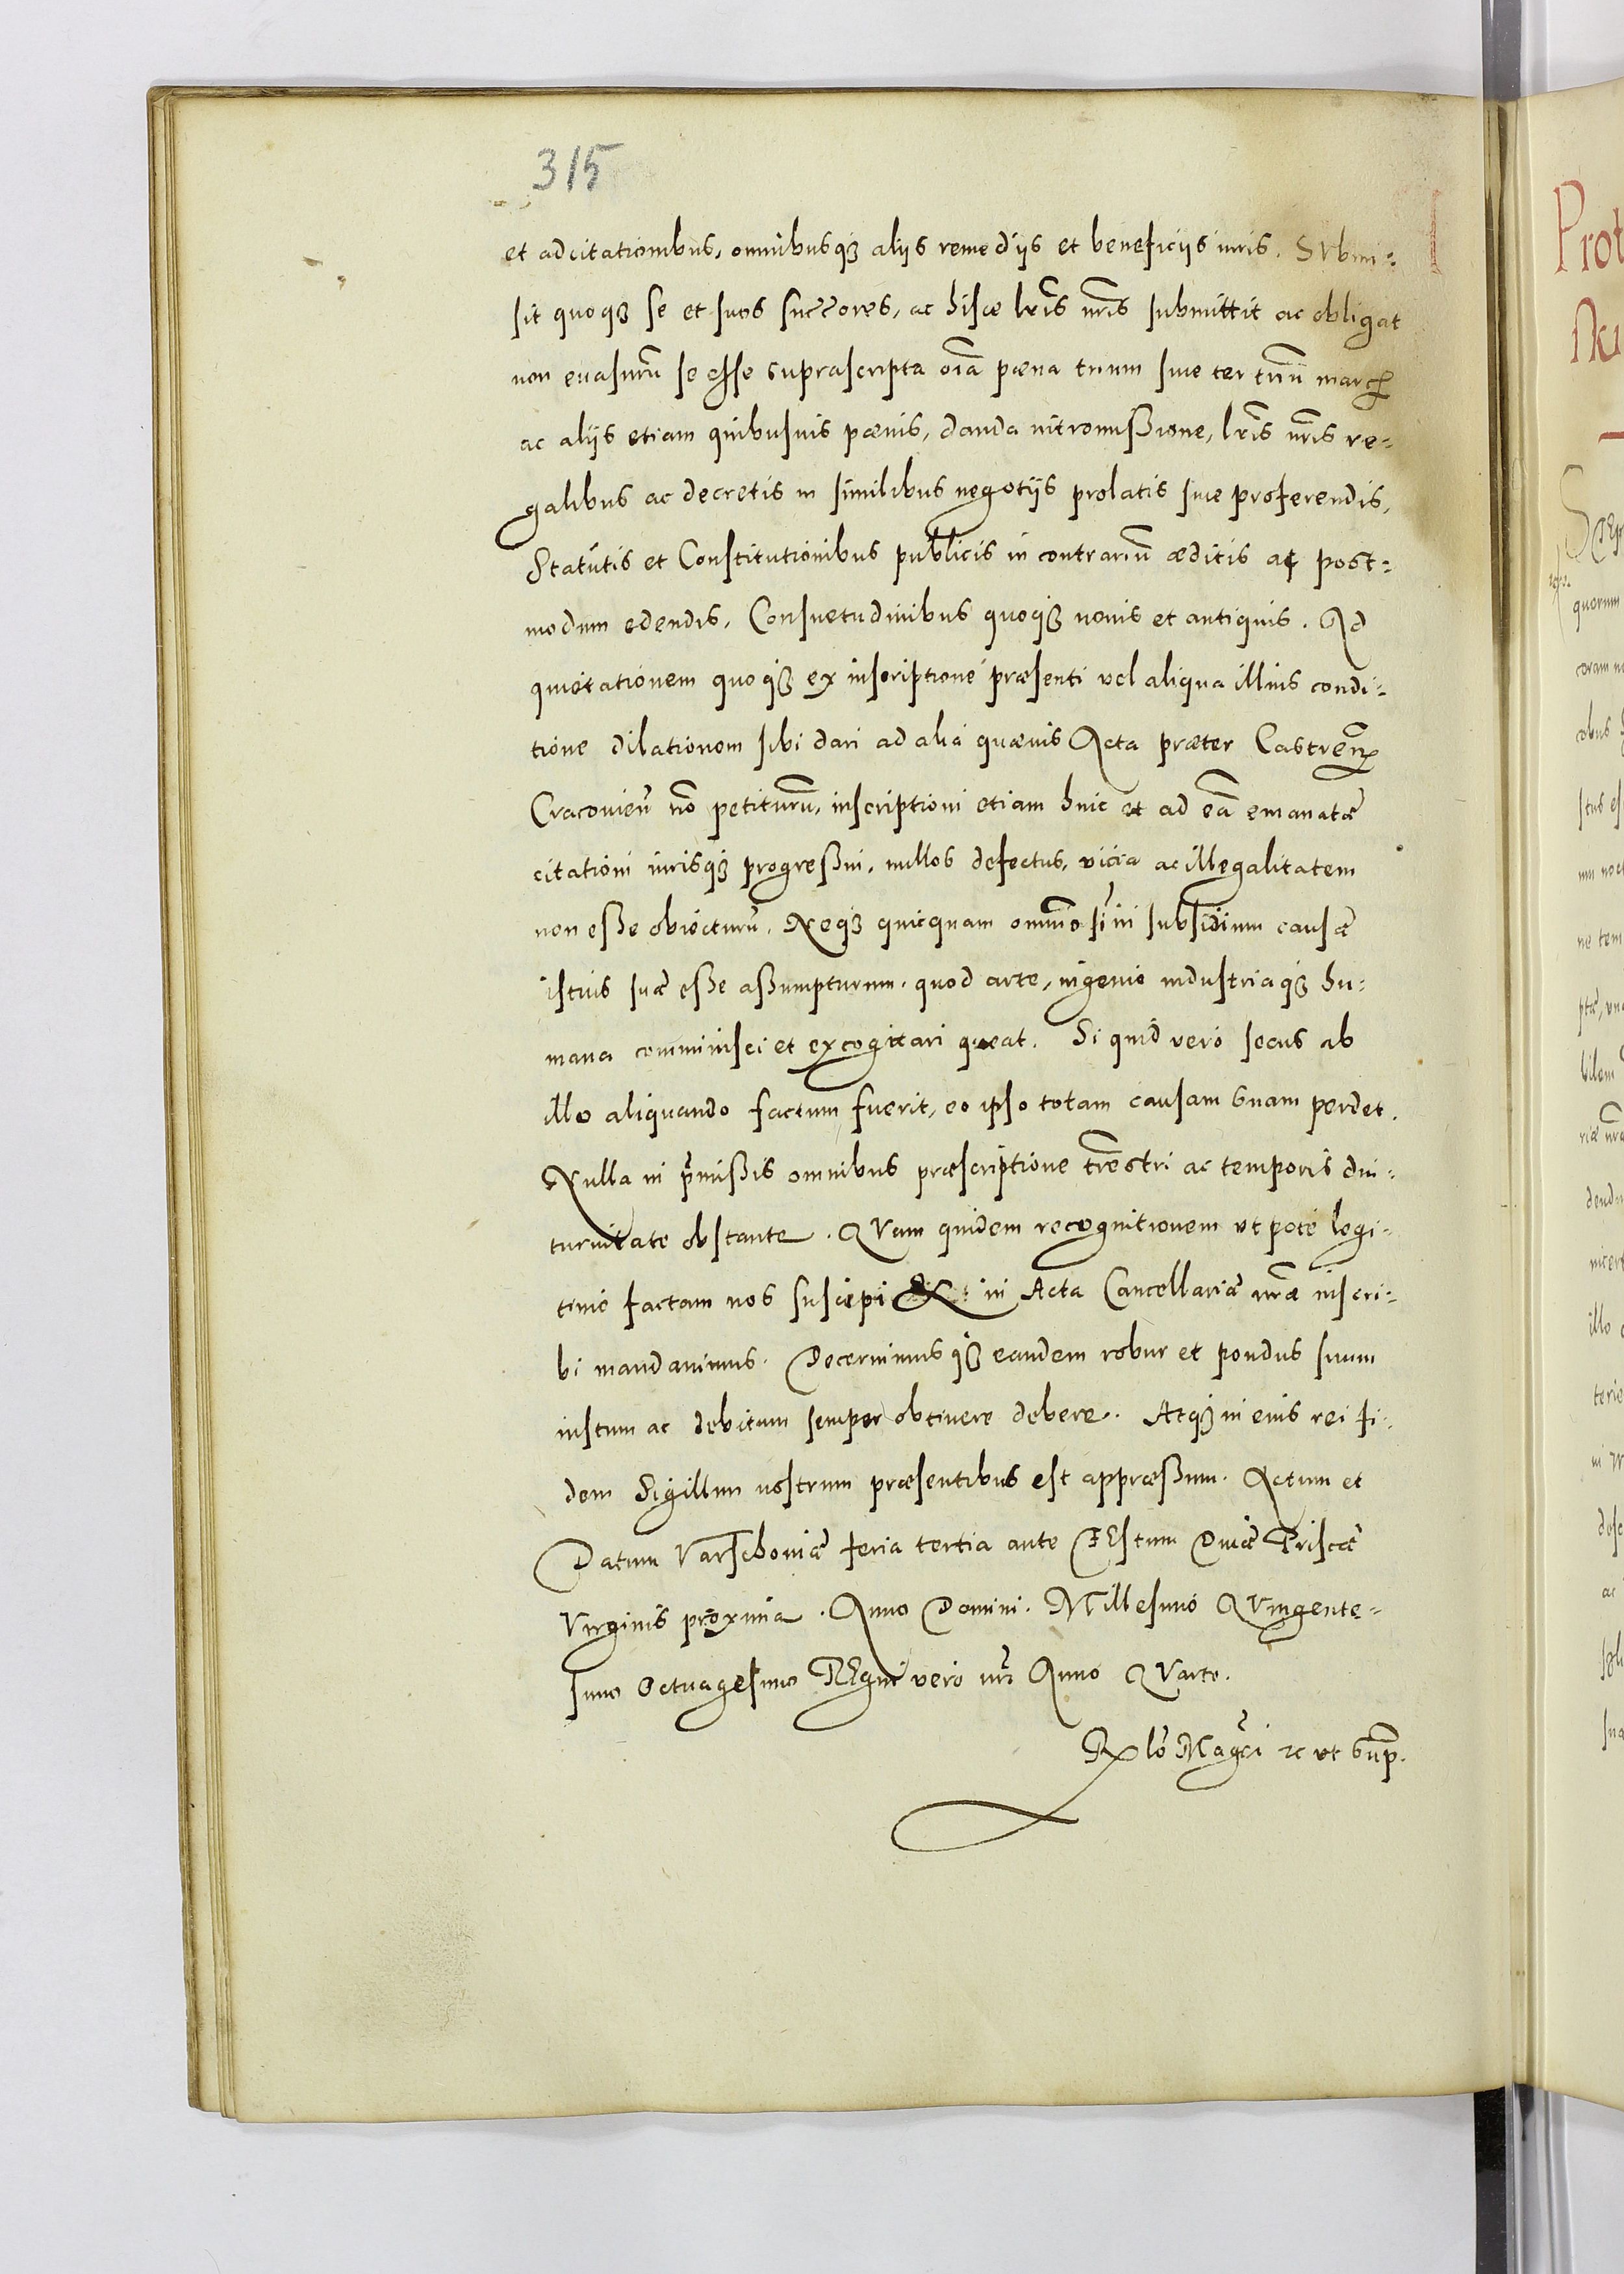 315
et adcitationibus, omnibusq3 alijs remedijs et beneficijs iuris. SVbmi:
sit quoq3 se et suos succores, ac hisce lris nris submittit ac obligat
non euasurũ se esse suprascripta oĩa pæna trium siue ter triũ march
ac alijs etiam quibusuis pænis, danda intromissione, lris nris re:
galibus ac decretis in similibus negotijs prolatis siue proferendis,
Statutis et Constitutionibus publicis in contrariũ æditis ac post:
modum edendis, Consuetudinibus quoq3 nouis et antiquis. Ad
quietationem quoq3 ex inscriptione præsenti vel aliqua illius condi:
tione dilationem sibi dari ad alia quæuis Acta præter Castreñ
Cracouieñ nõ petiturũ, inscriptioni etiam huic et ad eã emanatæ
citationi iurisq3 progressui, nullos defectus, vicia ac illegalitatem
non esse obiecturũ. Neq3 quicquam omnĩo sĩ in subsidium causæ
istius suæ esse assumpturum, quod arte, ingenio industriaq3 hu:
mana comminisci et excogitari queat. Si quid vero secus ab
illo aliquando factum fuerit, eo ipso totam causam suam perdet.
Nulla in p̃missis omnibus præscriptione trestri ac temporis diu:
turnitate obstante. QVam quidem recognitionem utpote legi:
time factam nos suscepi & in Acta Cancellariæ nræ inscri:
bi mandauimus. Decernimusq3 eandem robur et pondus suum
iustum ac debitum semper obtinere debere. Atq3 in eius rei fi:
dem Sigillum nostrum præsentibus est appræssum. Actum et
Datum Varschouiæ feria tertia ante FEstum Diuæ Priscæ
Virginis proxima. Anno Domini. Millesimo QVingente:
simo Octuagesimo REgni vero nrĩ Anno QVarto.
Rlõ Magci &c ut sup.
Prot
quorum
coram
cobus
ne tem
illo
ac